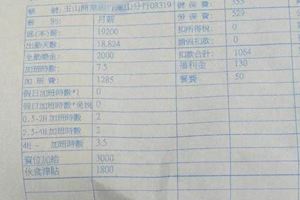 玉山商業銀 山分行08319 健保費 355
薪別 月薪 勞保費 529
底(本)薪 19200 扣所得稅
出勤天數 18.824 借支扣款
全勤獎金 2000 扣款合計 1064
加班時數 7.5 福利金 130
加班費 1285 餐費 50
假日加班時數*1 0
假日加班時數*免稅 0
0.5-2H 加班時數 2
2.5-4H 加班時數 2
4H - 加班時數 3.5
職位加給 3000
伙食津貼 1800